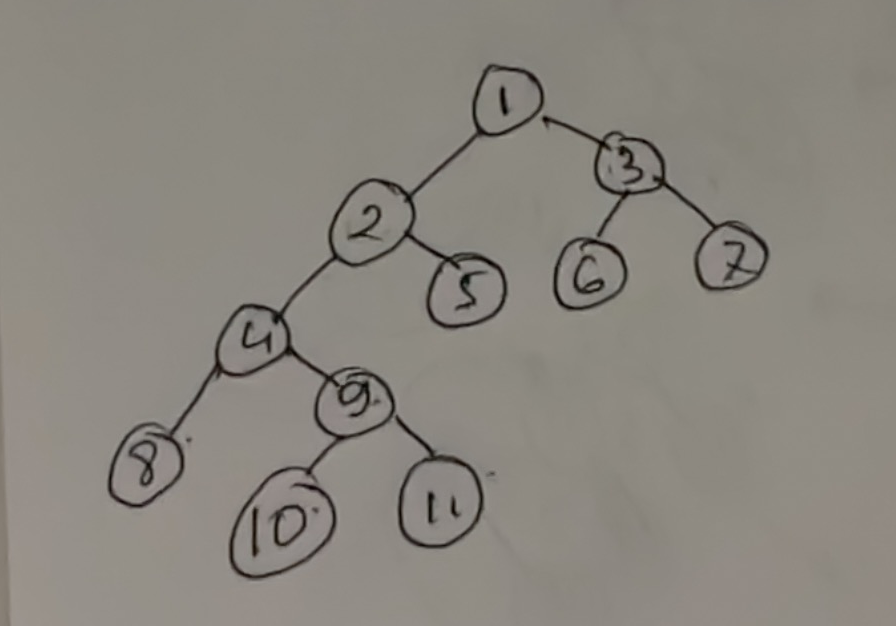 1
2 3
4 5 6 7
8 9
10 11